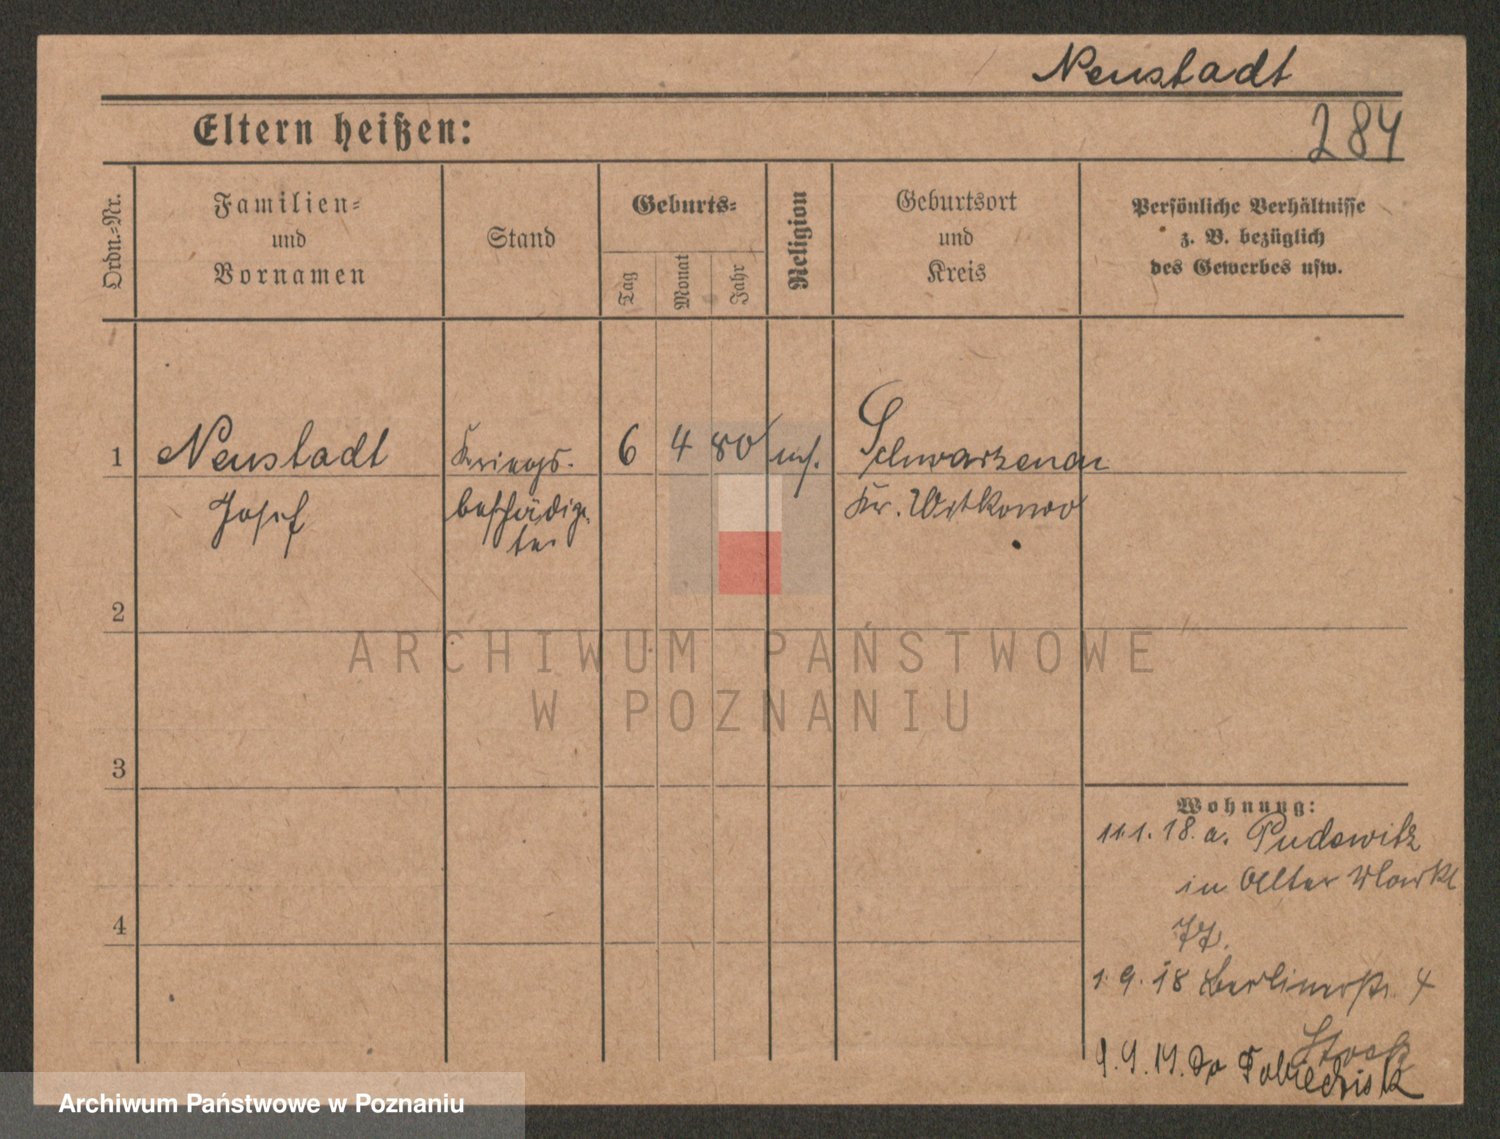 Neustadt
284
Eltern heißen:
Ordn.-Nr.
Familien-
und
Vornamen
Stand
Geburts-
Tag
Monat
Jahr
Religion
Geburtsort
und
Kreis
Persönliche Verhältnisse
z. B. bezüglich
des Gewerbes usw.
1
Neustadt
Josef
Kriegs-
beschädig-
ter
6 4 80
Schwarzenau
Kr. Witkowo
2
3
4
Wohnung:
11.1.18. a. Pudewitz
in Alter Markt
77.
1.9.18 Berlinerstr. 4
9.4.19. Do Pobiedzisk
ARCHIWUM PAŃSTWOWE
W POZNANIU
Archiwum Państwowe w Poznaniu